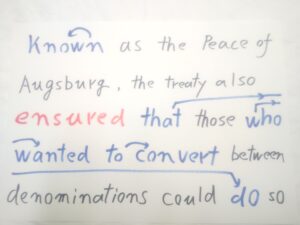 Known as the Peace of
Augsburg, the treaty also
ensured that those who
wanted to convert between
denominations could do so